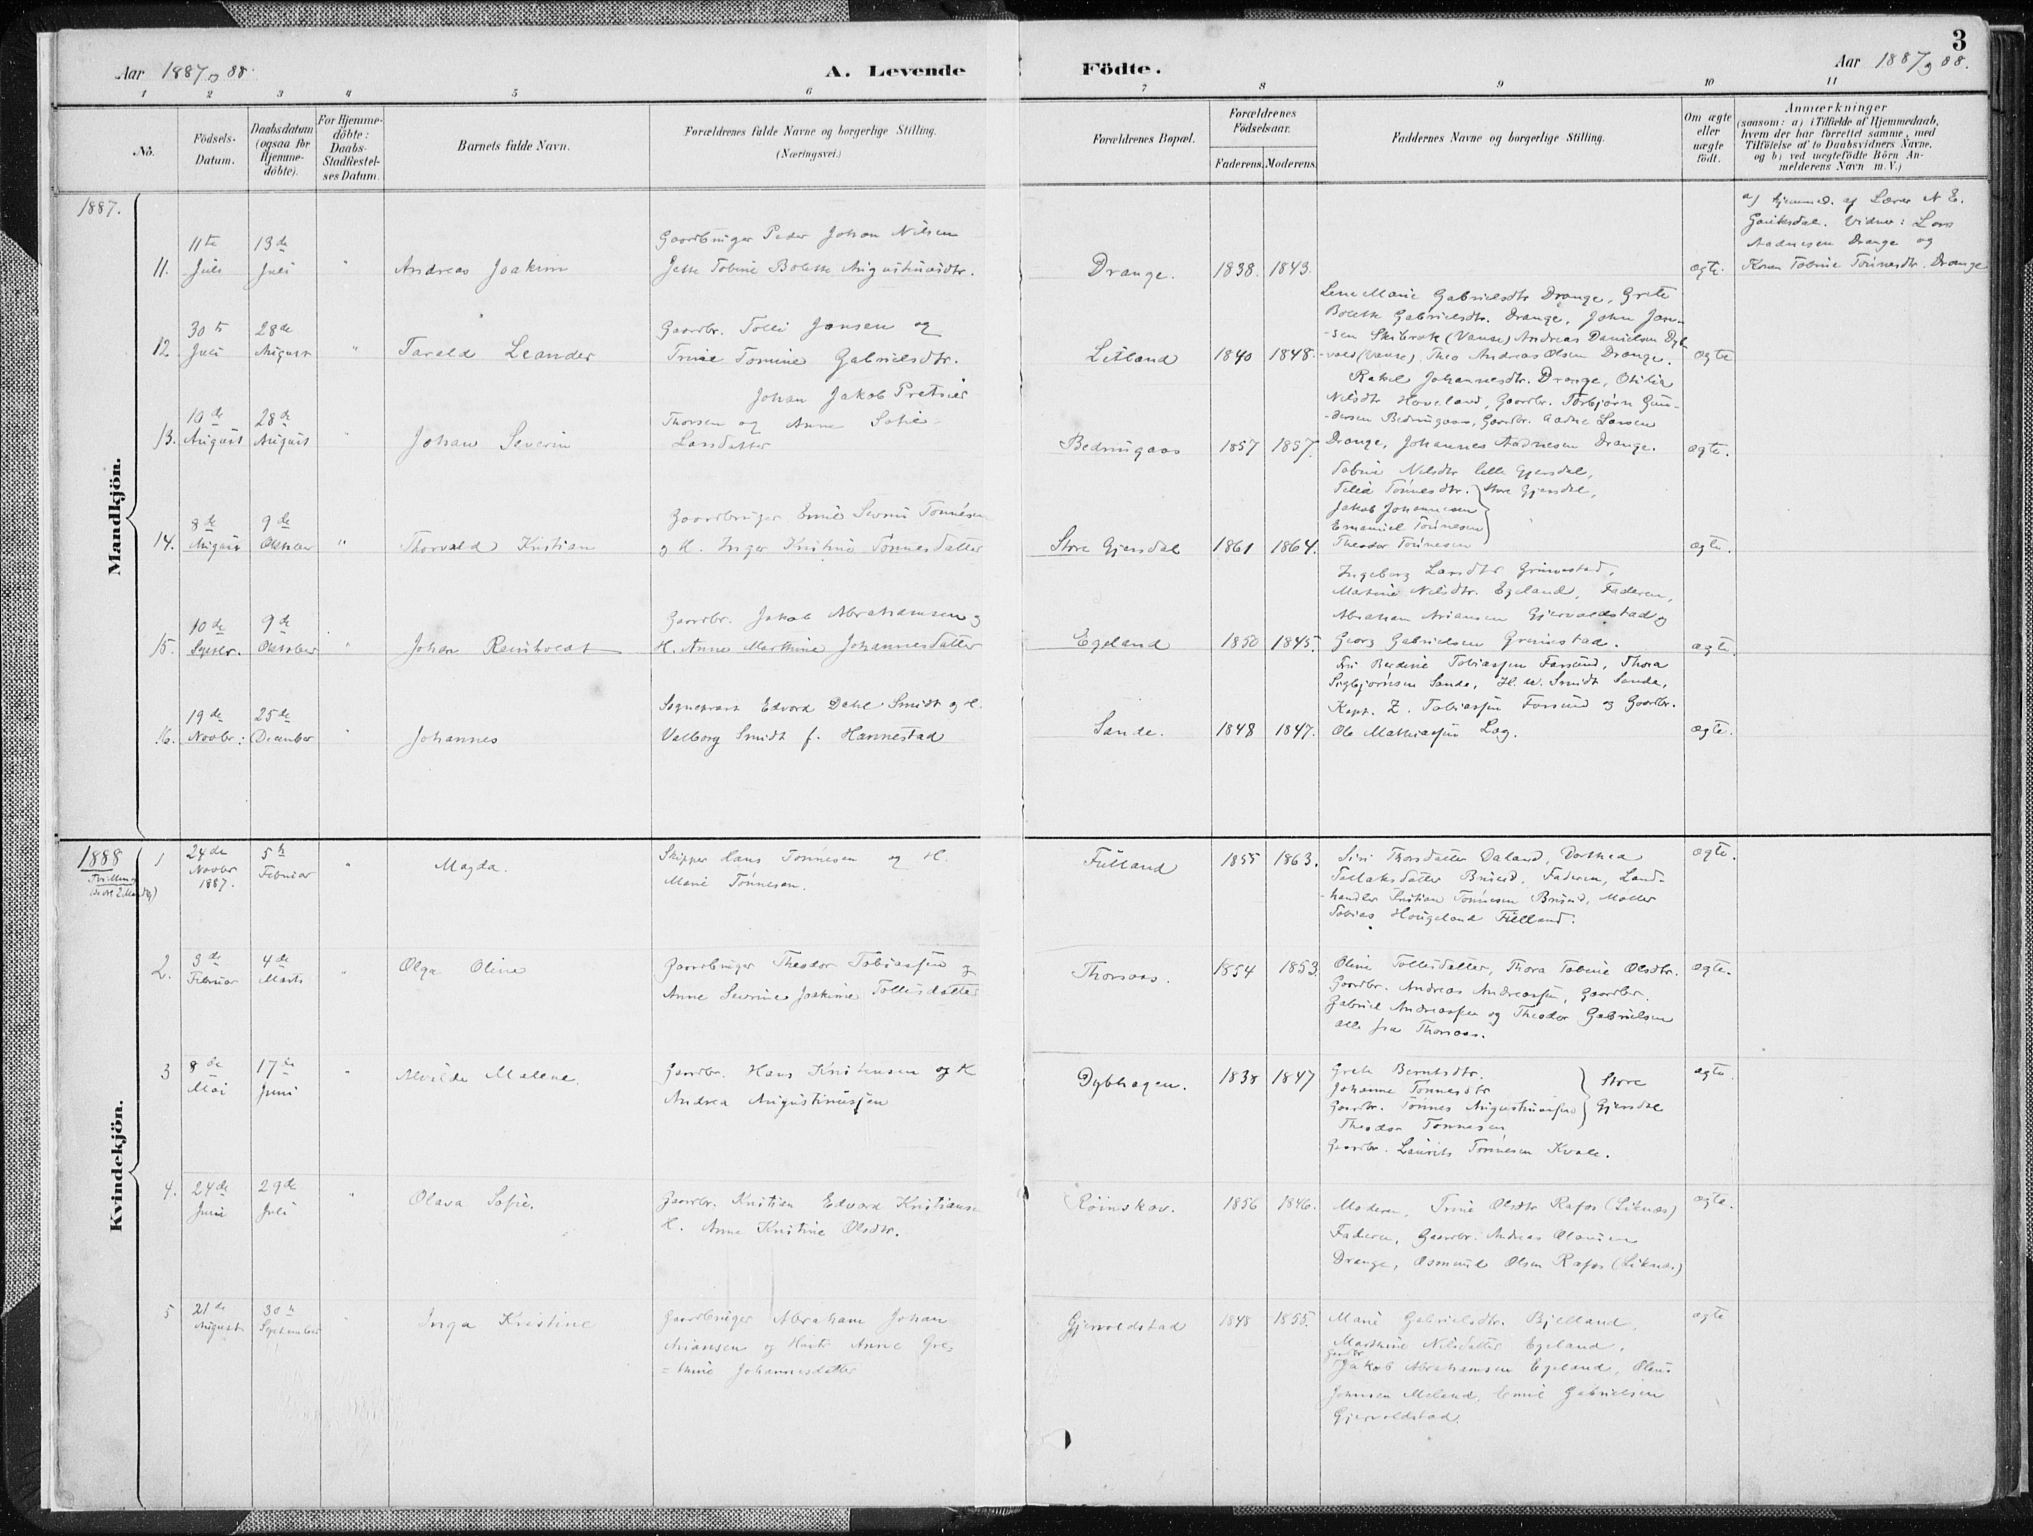 3
Aar 1887 og 88.
A. Levende
Födte.
Aar 1887 og 88.
1 2 3 4 5 6 7 8 9 10 11
No.
Födsels-
Datum.
Daabsdatum
(ogsaa for
Hjemme-
döbte).
For Hjemme-
döbte:
Daabs-
Stadfæstel-
ses Datum.
Barnets fulde Navn.
Forældrenes fulde Navne og borgerlige Stilling.
(Næringsvei.)
Forældrenes Bopæl.
Forældrenes
Födselsaar.
Faderens. Moderens.
Faddernes Navne og borgerlige Stilling.
Om ægte
eller
uægte
födt.
Anmærkninger
(saasom: a) i Tilfælde af Hjemmedaab,
hvem der har forrettet samme, med
Tilföielse af to Daabsvidners Navne.
og b) ved uægtefödte Börn An-
melderens Navn m. V.)
Mandkjön.
1887.
11.
11te
Juli
13de
Juli
"
Andreas Joakim
Gaardbruger Peder Johan Nilsen
Tobine Bolette Augustinusdtr.
Drange.
1838. 1843.
ægte.
a) Hjemmed. af Lærer N. E.
Vidner: Lars
Aadnesen Drange og
Karen Tobine Tönnesdtr. Drange
12.
30te
Juli
28de
August
"
Tarald Leander
Gaardbr. Tolli Jansen og
Trine Tomine Gabrielsdtr.
Litland
1840 1848.
Lene Marie Gabrielsdtr Drange, Grete
Bolette Gabrielsdtr. Drange, John Jan-
-sen Skibraak (Vanse) Andreas Danielsen
(Vanse), Theo Andreas Olsen Drange.
ægte
13.
10de
August
28de
August
"
Johan Severin
Johan Jakob Pretsius
Thorsen og Anne Sofie
Larsdatter
Bedringaas
1857 1857.
Rakel Johannesdtr. Drange, Otilia
Nilsdtr Hoveland, Gaardbr. Torbjörn Gun-
-dersen Bedringaas, Gaardbr. Aadne Larsen
Drange, Johannes Aadnesen Drange.
ægte.
14.
8de
August
9de
Oktober
"
Thorvald Kristian
Gaardbruger Emil Severin Tönnesen
og H. Inger Kristine Tönnesdatter
Store Gjersdal
1861 1864.
Tobine Nilsdtr lille Gjersdal,
Tönnesdtr. } Store Gjersdal,
Jakob Johannesen
Emanuel Tönnesen
Theodor Tönnesen
ægte.
15.
10de
Septbr.
9de
Oktober
"
Johan Reinholdt
Gaardbr. Jakob Abrahamsen og
H. Anne Marthine Johannesdatter
Egeland
1850 1845.
Ingeborg Larsdtr Grimestad,
Martine Nilsdtr. Egeland, Faderen,
Abraham Ariansen Gjervoldstad og
Georg Gabrielsen Grimestad.
ægte.
16.
19de
Novbr:
25de
December
"
Johannes
Sogneprest Edvard Dahl Smidt og H.
Valborg Smidt f. Hannestad
Sande.
1848 1847.
Berdine Tobiassen Farsund, Thora
Sigbjörnsen Sande, H. M. Smidt Sande,
Kapt. Z. Tobiassen Farsund og Gaardbr.
Ole Mathiassen Log.
ægte.
Kvindekjön.
1888
Tvilling
1
24de
Novbr
1887.
5te
Februar
"
Magda.
Skipper Hans Tönnesen og H.
Marie Tönnesen.
Fidland
1855 1863.
Siri Thorsdatter Daland, Dorthea
Tallaksdatter Brisid, Faderen, Land-
-handler Kristian Tönnesen Brisid, Möller
Tobias Hougeland Fidland.
ægte.
2.
3de
Februar
4de
Marts
"
Olga Oline
Gaardbruger Theodor Tobiassen og
Anne Severine Joakime Tollisdatter
Thorsaas.
1854 1853
Oline Tollisdatter, Thora Tobine Olsdtr.
Gaardbr. Andreas Andreassen, Gaardbr.
Gabriel Andreassen og Theodor Gabrielsen
alle fra Thorsaas.
ægte.
3
8de
Mai
17de
Juni
"
Alvilde Malene.
Gaardbr. Hans Kristensen og H
Andrea Augustinussen
Dybhagen.
1838 1847
Grete Berntsdtr.
Johanne Tönnesdtr
Gaardbr. Tönnes Augustinussen } Store Gjersdal
Theodor Tönnesen
Gaardbr. Lauritz Tönnesen Kvale.
ægte.
4.
24de
Juni
29de
Juli
"
Olava Sofie.
Gaardbr. Kristian Edvard Kristiansen
H. Anne Kristine Olsdtr.
Röinskov.
1856 1846.
Moderen, Trine Olsdtr Rafos (Liknes)
Faderen, Gaardbr. Andreas Olausen
Drange, Osmund Olsen Rafos (Liknes.)
ægte.
5
21de
August
30te
September
"
Inga Kristine
Gaardbruger Abraham Johan
Ariansen og Hustr Anne Gre-
=thine Johannesdatter
Gjervoldstad
1848 1855.
Marie Gabrielsdtr. Bjelland,
Marthine Nilsdatter Egeland,
Gaardbr
Jakob Abrahamsen Egeland, Olaus
Johnsen Meland, Emil Gabrielsen
Gjervoldstad.
ægte